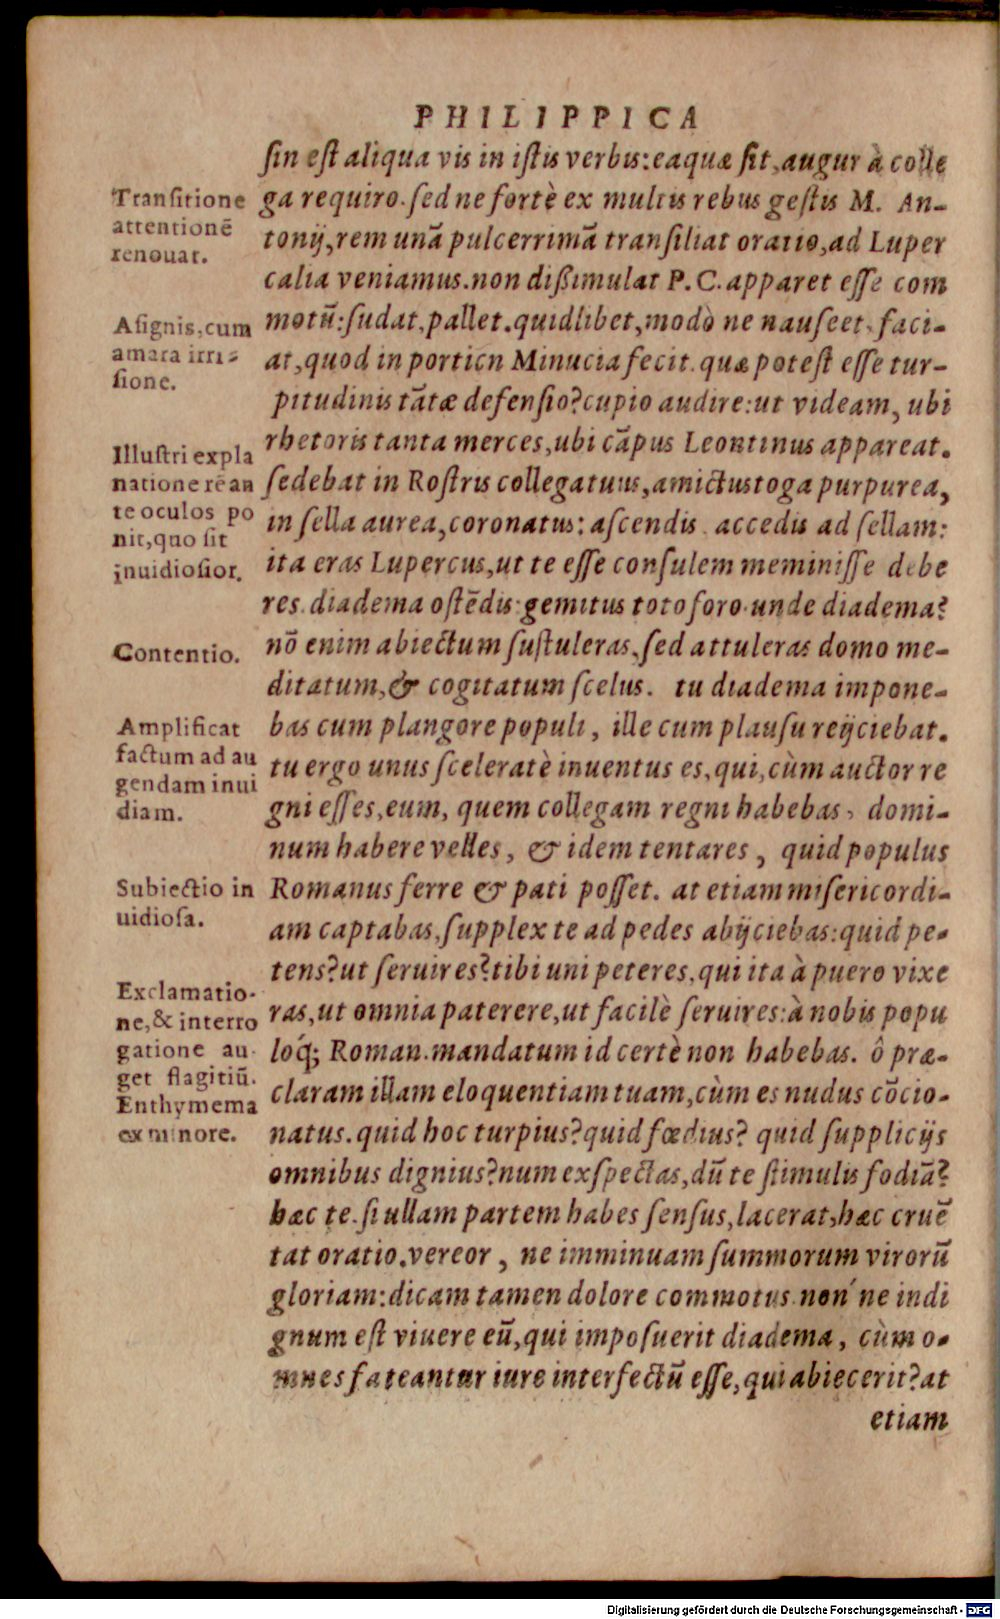 PHILIPPICA
sin est aliqua vis in istis verbis: ea quæ sit, augur à colle
ga requiro. sed ne fortè ex multis rebus gestis M. An-
tonij, rem unã pulcerrimã transiliat oratio, ad Luper
calia veniamus. non dißimulat P. C. apparet esse com
motũ: sudat, pallet. quidlibet, modò ne nauseet, faci-
at, quod in porticn Minucia fecit. quæ potest esse tur-
pitudinis tãtæ defensio? cupio audire: ut videam, ubi
rhetoris tanta merces, ubi cãpus Leontinus appareat.
sedebat in Rostris collega tuus, amictus toga purpurea,
in sella aurea, coronatus: ascendis. accedis ad sellam:
ita eras Lupercus, ut te esse consulem meminisse debe
res. diadema ostẽdis: gemitus toto foro. unde diadema?
nõ enim abiectum sustuleras, sed attuleras domo me-
ditatum, & cogitatum scelus. tu diadema impone-
bas cum plangore populi, ille cum plausu reijciebat.
tu ergo unus sceleratè inuentus es, qui, cùm auctor re
gni esses, eum, quem collegam regni habebas, domi-
num habere velles, & idem tentares, quid populus
Romanus ferre & pati posset. at etiam misericordi-
am captabas, supplex te ad pedes abijciebas: quid pe-
tens? ut seruires? tibi uni peteres, qui ita à puero vixe
ras, ut omnia paterere, ut facilè seruires: à nobis popu
loq́; Roman. mandatum id certè non habebas. ô præ-
claram illam eloquentiam tuam, cùm es nudus cõcio-
natus. quid hoc turpius? quid fœdius? quid supplicijs
omnibus dignius? num exspectas, dũ te stimulis fodiã?
hæc te. si ullam partem habes sensus, lacerat, hæc cruẽ
tat oratio. vereor, ne imminuam summorum virorũ
gloriam: dicam tamen dolore commotus. non ́ne indi
gnum est viuere eũ, qui imposuerit diadema, cùm o-
mnes fateantur iure interfectũ esse, qui abiecerit? at
etiam
Transitione
attentionẽ
renouat.
Asignis, cum
amara irri-
sione.
Illustri expla
natione rẽ an
te oculos po
nit, quo sit
inuidiosior.
Contentio.
Amplificat
factum ad au
gendam inui
diam.
Subiectio in
uidiosa.
Exclamatio-
ne, & interro
gatione au-
get flagitiũ.
Enthymema
ex minore.
Digitalisierung gefördert durch die Deutsche Forschungsgemeinschaft - DFG